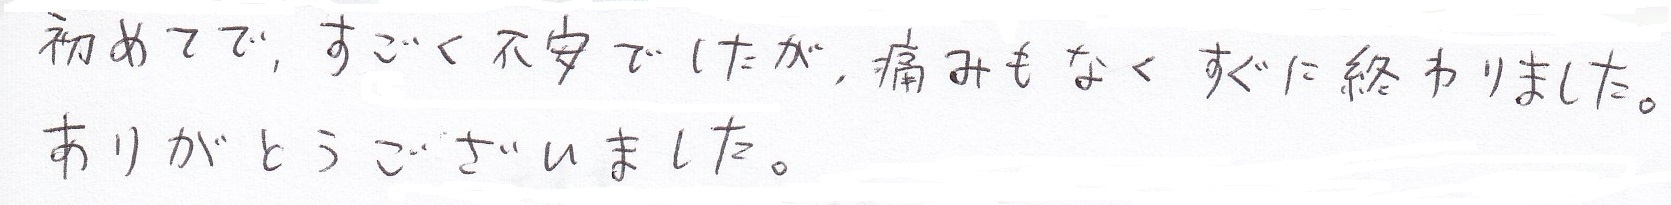 初めてで, すごく不安でしたが, 痛みもなくすぐに終わりました。
ありがとうございました。